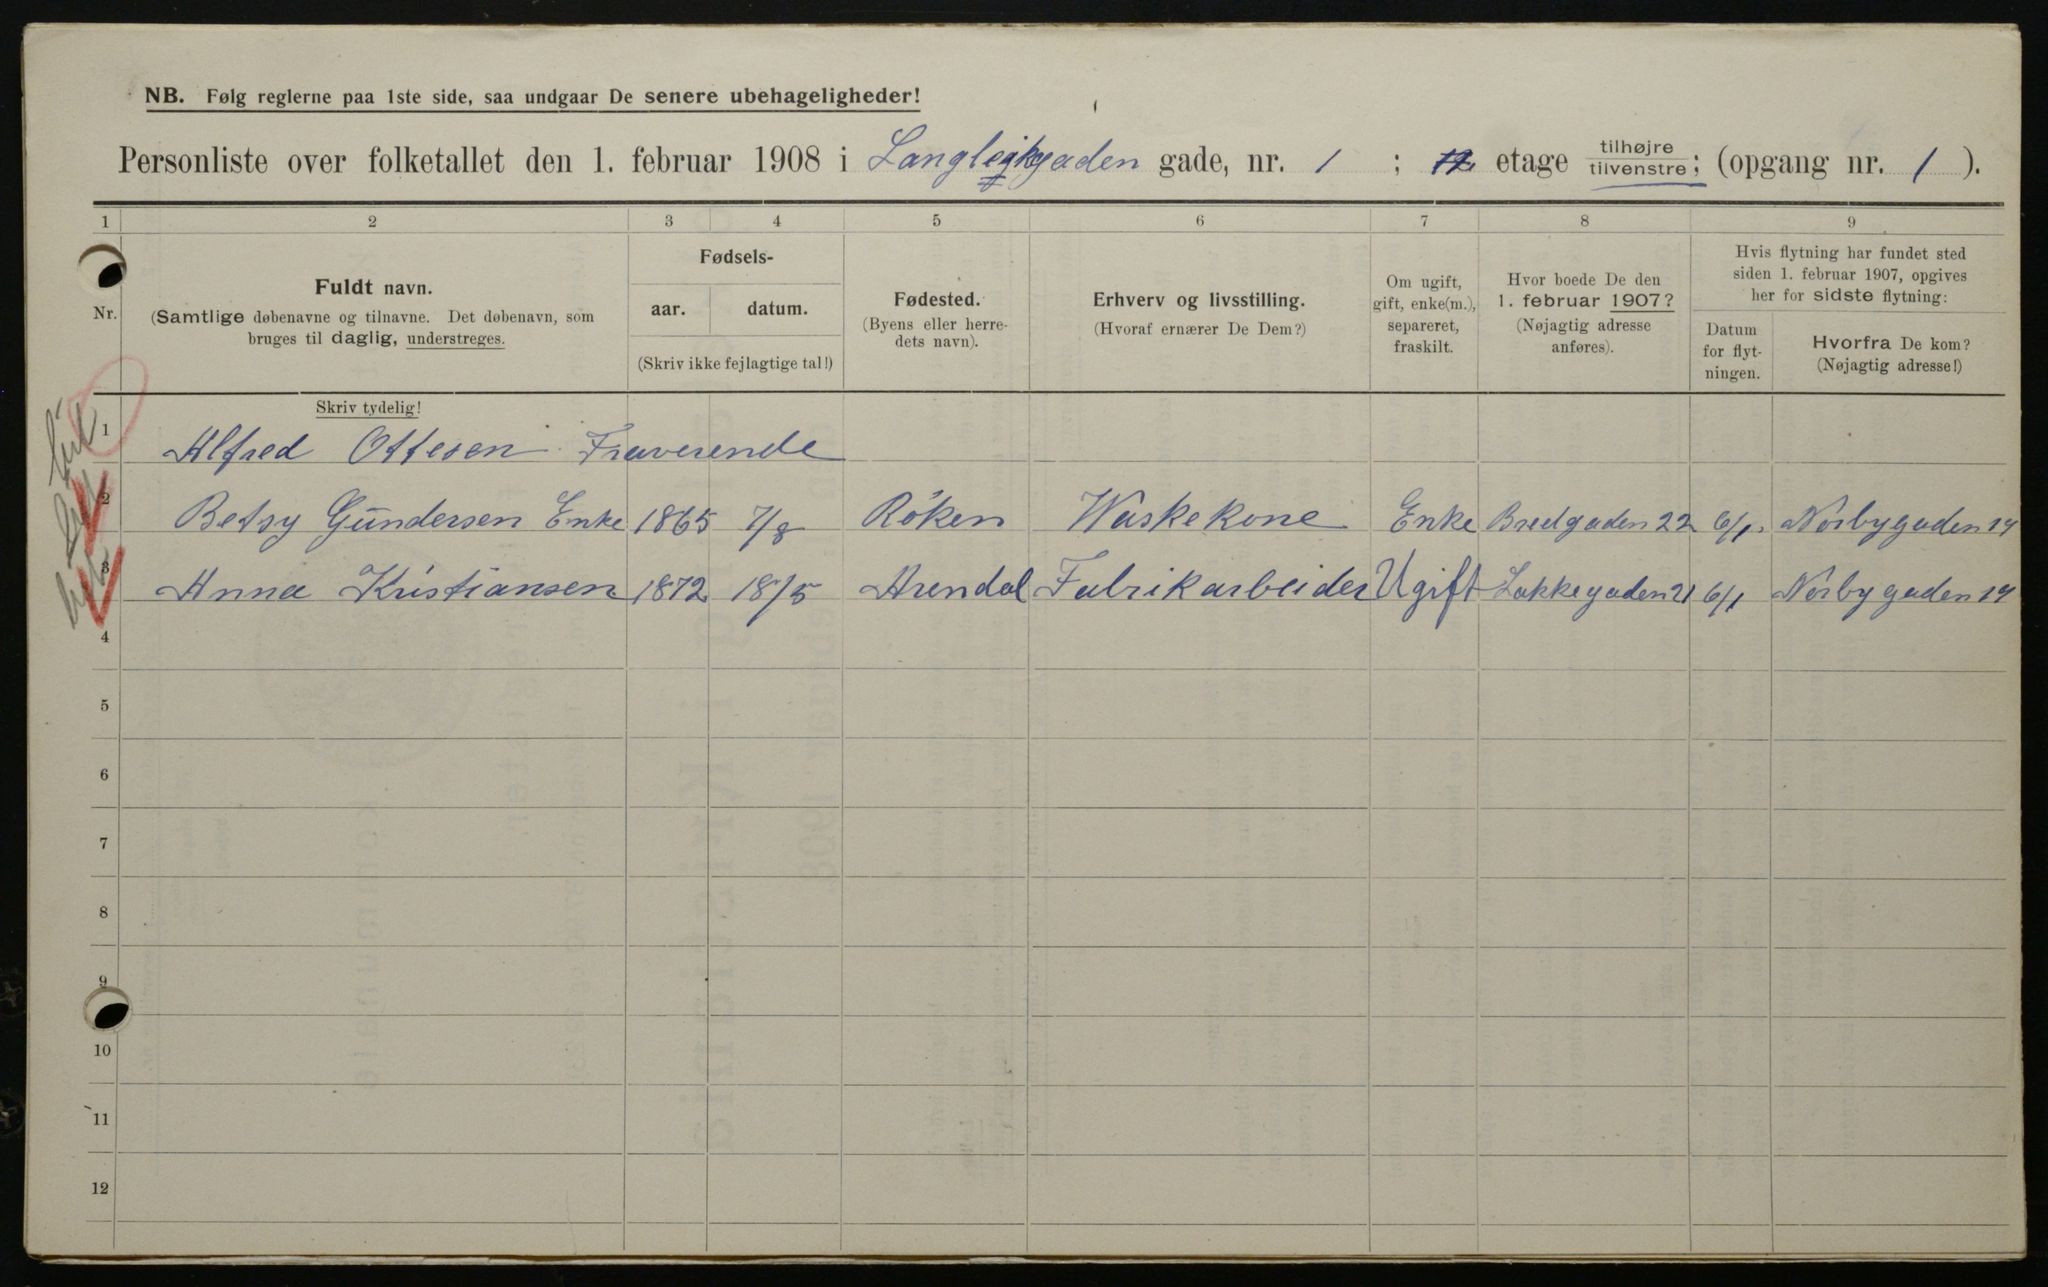 NB. Følg reglerne paa 1ste side, saa undgaar De senere ubehageligheder!
Personliste over folketallet den 1. februar 1908 i Langleikgaden gade, nr. 1 ; etage tilhøjre tilvenstre; (opgang nr. 1 ).
1 2 3 4 5 6 7 8 9
Nr.
Fuldt navn.
(Samtlige døbenavne og tilnavne. Det døbenavn, som
bruges til daglig, understreges.
Fødsels-
aar. datum.
(Skriv ikke fejlagtige tal!)
Fødested.
(Byens eller herre-
dets navn).
Erhverv og livsstilling.
(Hvoraf ernærer De Dem?)
Om ugift,
gift, enke(m.),
separeret,
fraskilt.
Hvor boede De den
1. februar 1907?
(Nøjagtig adresse
anføres).
Hvis flytning har fundet sted
siden 1. februar 1907, opgives
her for sidste flytning:
Datum
for flyt-
ningen.
Hvorfra De kom?
(Nøjagtig adresse!)
Skriv tydelig!
1 Alfred Ottesen Fraverende
2 Betsy Gundersen Enke 1865 7/8 Røken Waskekone Enke Bredgaden 22 6/1 Norbygaden 19
3 Anna Kristiansen 1872 18/5 Arendal Fabrikarbeider Ugift Lakkegaden 21 6/1 Norbygaden 19
4
5
6
7
8
9
10
11
12